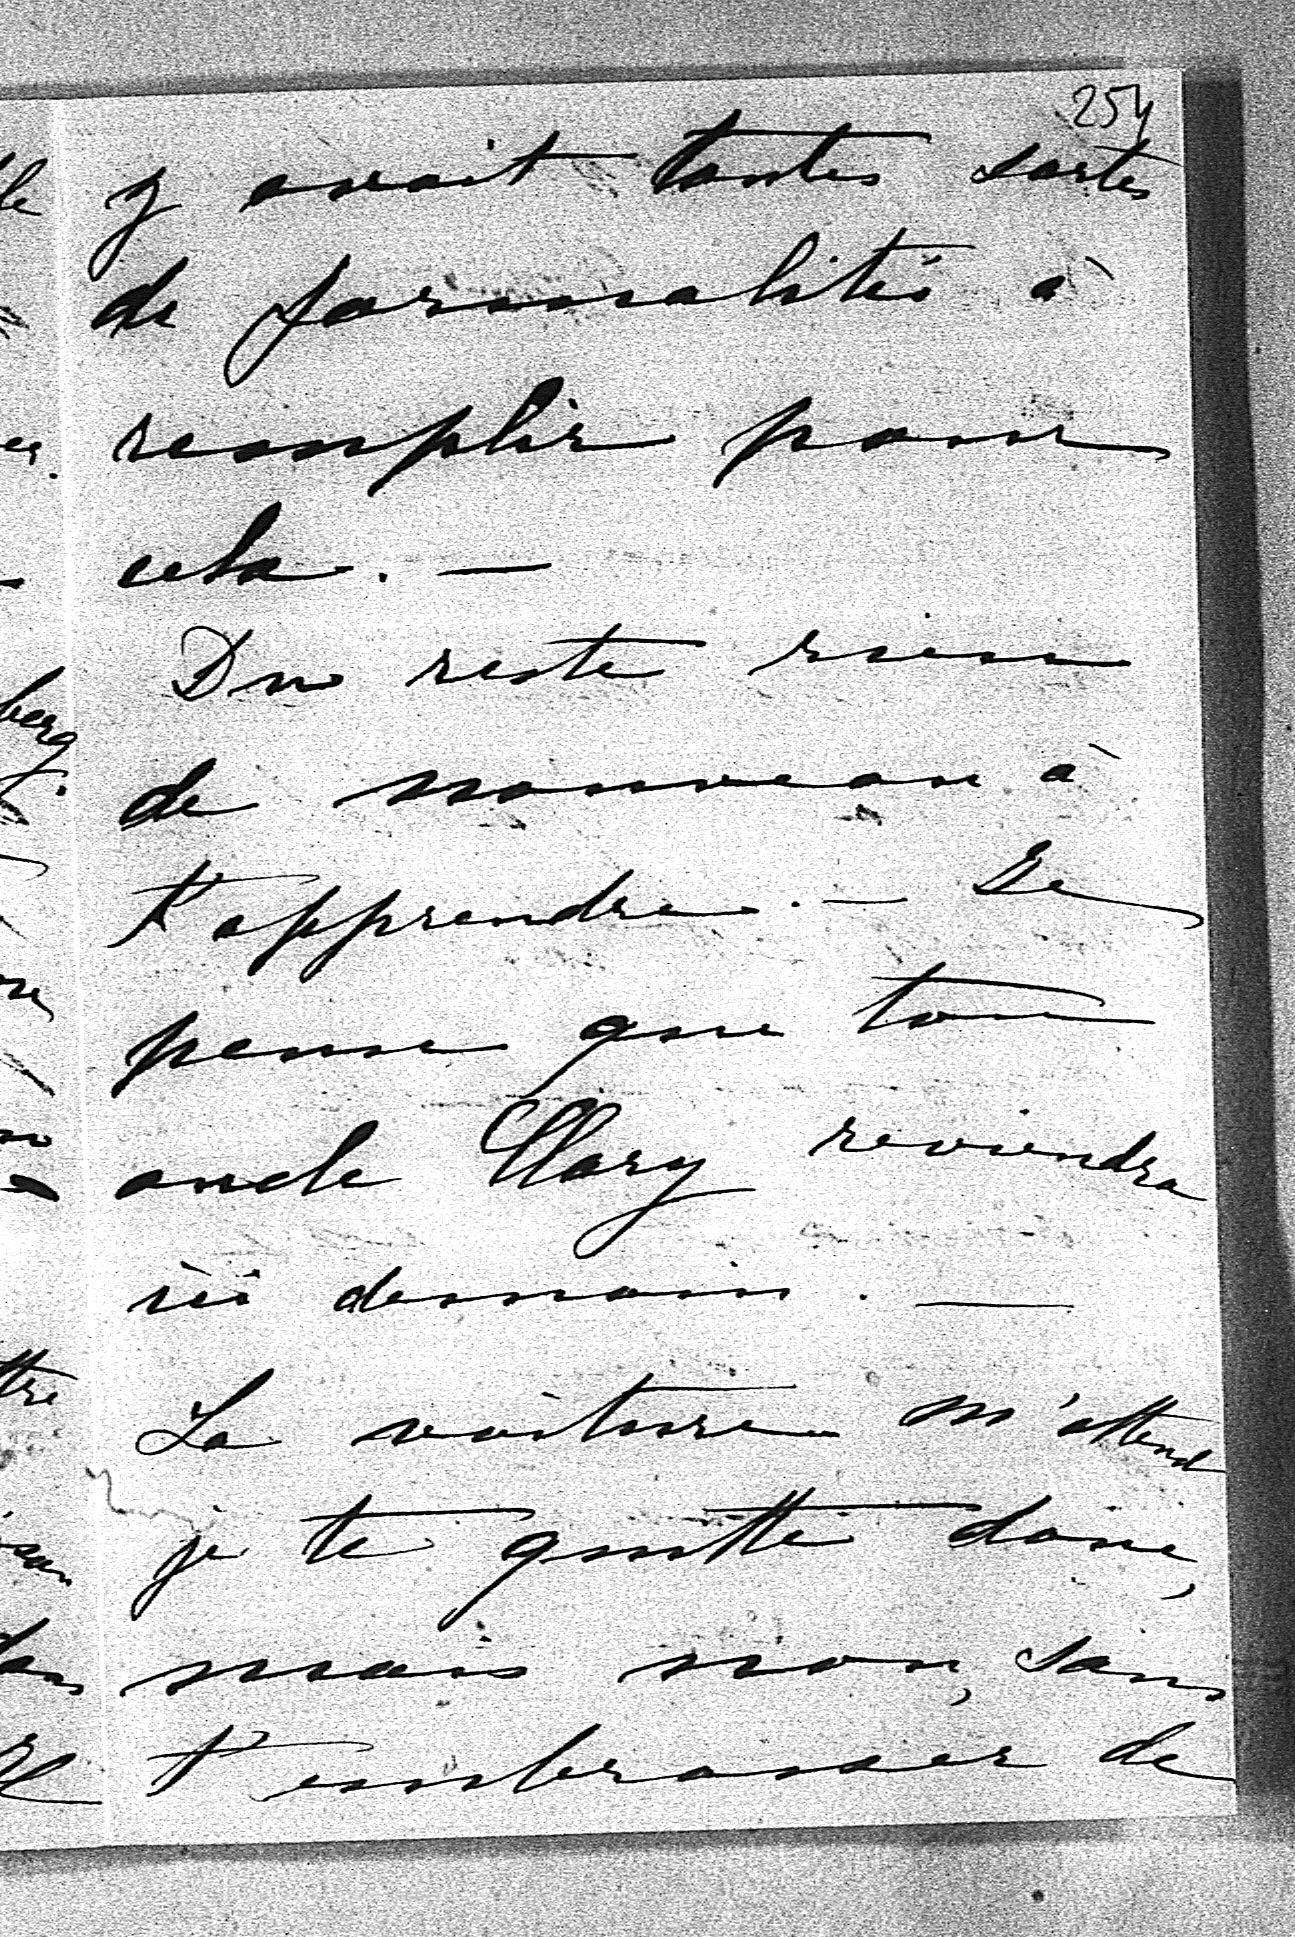 254
y avait toutes sortes
de formalités à
remplir pour
cela. —
Du reste rien
de nouveau à
t'apprendre. — Je
pense que ton
oncle Clary reviendra
ici demain. —
La voiture m'attend
je te quitte donc,
mais non, sans
t'embrasser de